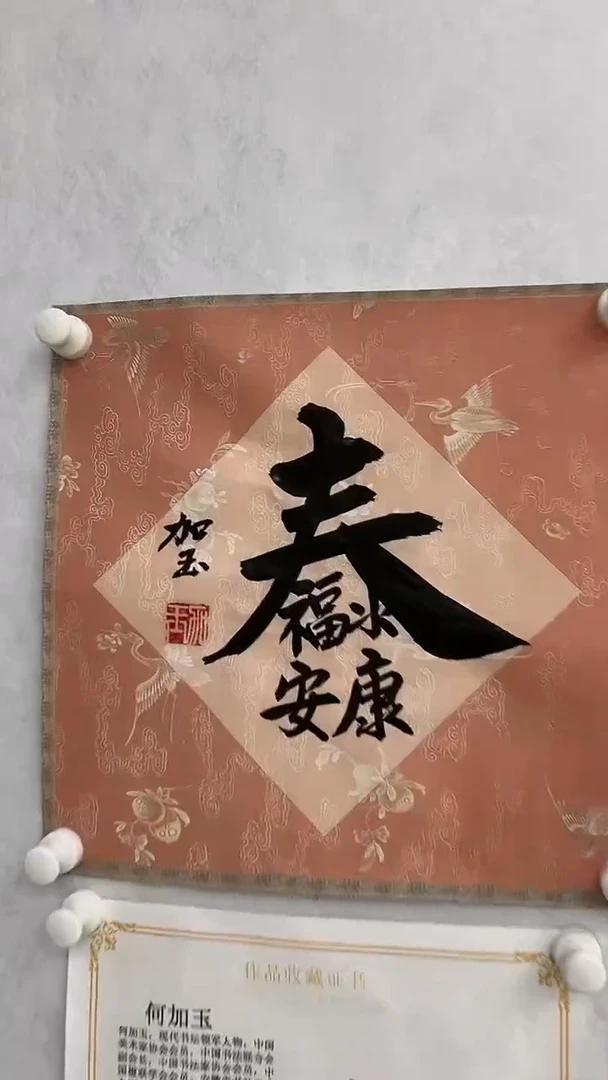 春
福永
安康
加
玉
作品收藏证书
何加玉
何加玉，现代书坛领军人物，中国
美术家协会会员，中国书法联合会
副会长，中国书法家协会会员，中
国楹联学会会员，